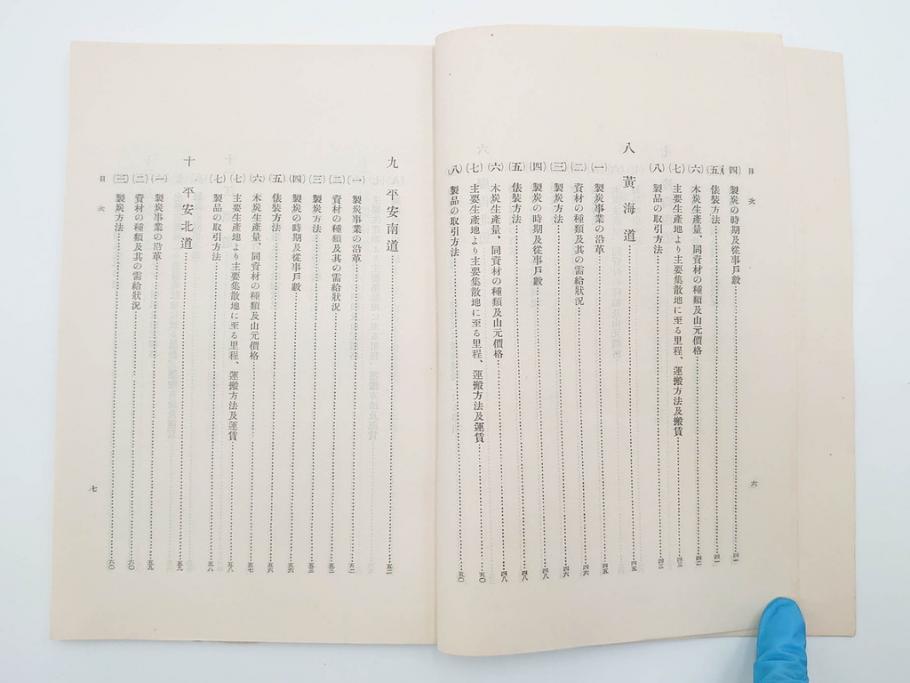 目次
六
(四) 製炭の時期及從事戶數 四一
(五) 俵裝方法 四一
(六) 木炭生產量、同資材の種類及山元價格 四二
(七) 主要生產地より主要集散地に至る里程、運搬方法及搬賃 四三
(八) 製品の取引方法 四三
八 黃海道 四五
(一) 製炭事業の沿革 四五
(二) 資材の種類及其の需給狀況 四六
(三) 製炭方法 四六
(四) 製炭の時期及從事戶數 四八
(五) 俵裝方法 四八
(六) 木炭生產量、同資材の種類及山元價格 四八
(七) 主要生產地より主要集散地に至る里程、運搬方法及運賃 五〇
(八) 製品の取引方法 五〇
九 平安南道 五二
(一) 製炭事業の沿革 五二
(二) 資材の種類及其の需給狀況 五三
(三) 製炭方法 五三
(四) 製炭の時期及從事戶數 五六
(五) 俵裝方法 五六
(六) 木炭生產量、同資材の種類及山元價格 五七
(七) 主要生產地より主要集散地に至る里程、運搬方法及運賃 五八
(七) 製品の取引方法 五八
十 平安北道 五九
(一) 製炭事業の沿革 五九
(二) 資材の種類及其の需給狀況 六〇
(三) 製炭方法 六〇
目次
七